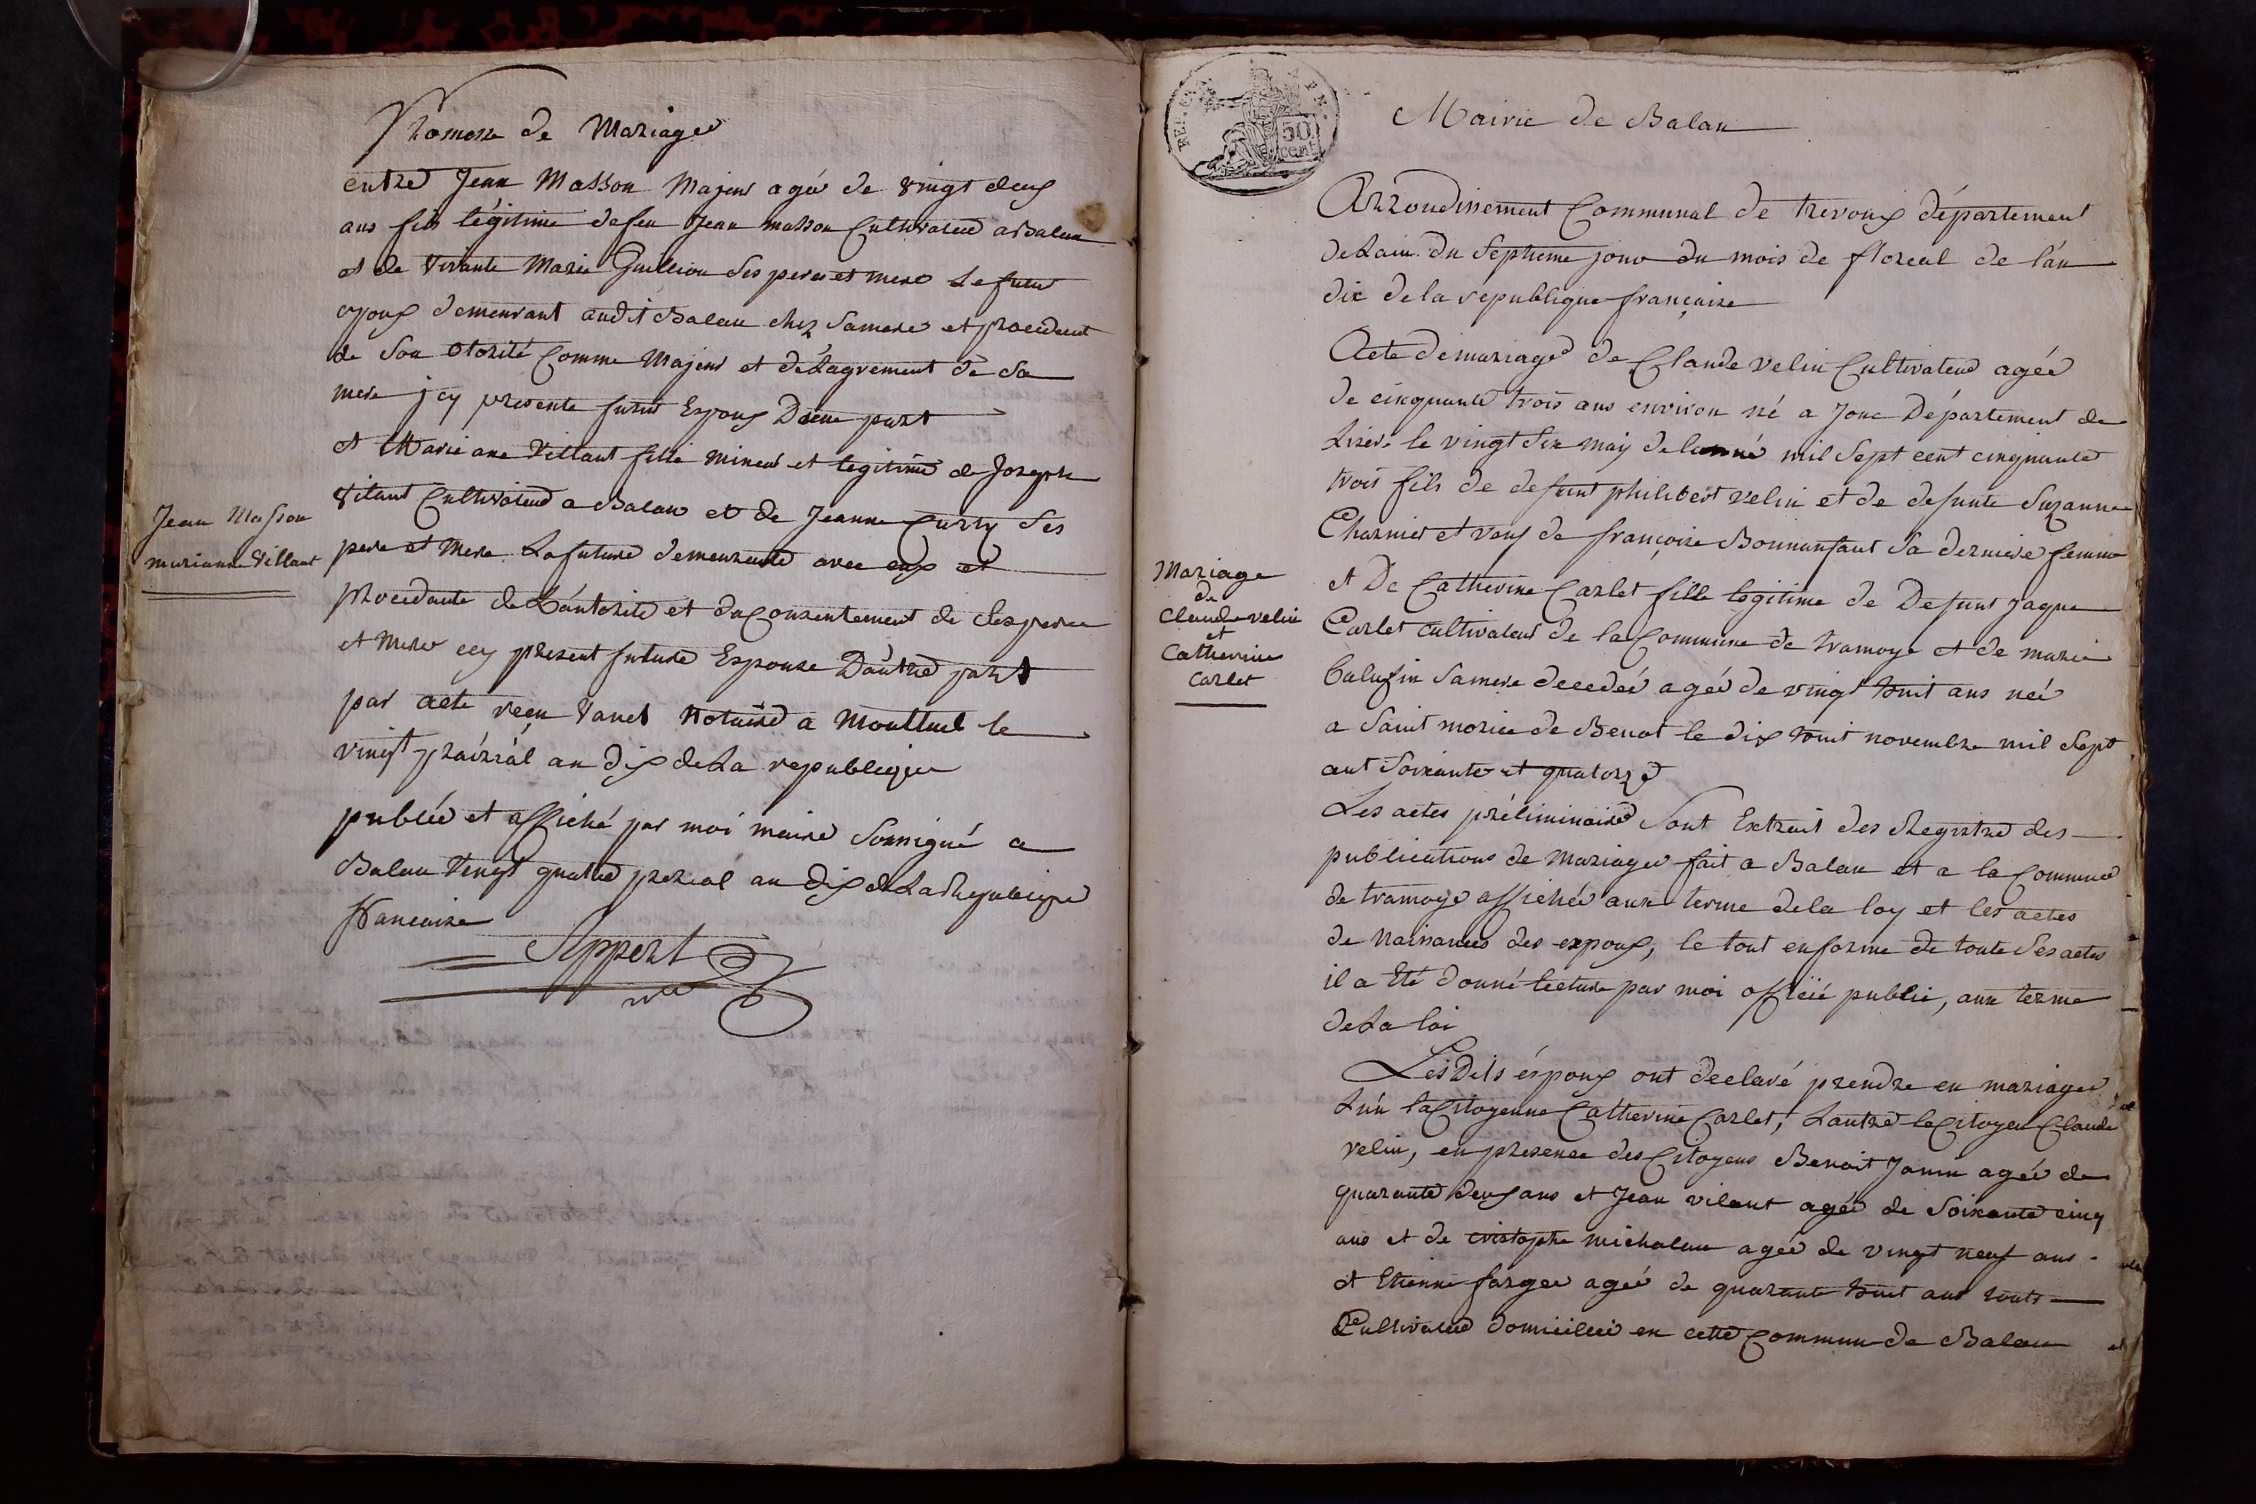 Promesse de Mariage
entre Jean Masson Majeur agé de vingt deux
ans fils légitime de feu Jean masson Cultivateur a Balan
et de vivante Marie Guillion ses pere et mere Le futur
epoux demeurant audit Balan chez sa mere et procedent
de son otorité Comme Majeur et de L'agrement de sa
mere jcy presente futur Espoux D'une part
et Marie ane Villant fille mineur et legitime de Joseph
Vilant Cultivateur a Balan et de Jeanne Curty ses
pere et mere La future demeurante avec eux et
procedante de L'autorité et du Consentement de ses pere
et mere icy present future Espouse D'autre part
par acte reçu Vanel Notaire a Montluel le
vingt prairial an dix de La republique
publiée et affiché par moi maire Sousigné a
Balan vingt quatre prerial an dix de La Republique
francaise
Sippert
Jean Masson
marianne Villant
REP. FRA.
50
cent
Mairie de Balan
Arrondissement Communal de trevoux département
de Lain du Septieme jour du mois de floreal de l'an
dix de la république française
Acte de mariage de Claude velin Cultivateur agée
de cinquante trois ans environ né a Jonc Département de
Lisere le vingt six may de lanné mil Sept cent cinquante
trois fils de defunt philibert velin et de defunte Suzanne
Charmier et veuf de françoise Bonnanfant Sa derniere femme
et De Catherine Carlet fille legitime de Defunt Jaque
Carlet cultivateur de la Commune de tramoye et de marie
sa mere decedeé ageé de vingt huit ans neé
a Saint morice de Benot le dix huit novembre mil Sept
cent Soixante et quatorze
Les actes préliminaire Sont Extrait des Registre des
publications de Mariages fait a Balan et a la Commune
de tramoye affichée aux terme de la loy et les actes
de Naisances des expoux, le tout en forme de toute Ses actes
il a été donné lecture par moi officié public, aux terme
de La loi
Les Dits époux ont declaré prendre en mariage
Lun la Citoyenne Catherine Carlet, Lautre le Citoyen Claude
velin, en presence des Citoyens Benoit Janin agée de
quarante deux ans et Jean vilant agée de Soixante cinq
ans et de cristophe michalau agée de vingt neuf ans
et Etienne farge ageé de quarante huit ans touts
Cultivateur domicilié en cette Commune de Balan
Mariage
de
Claude velin
et
Catherine
Carlet